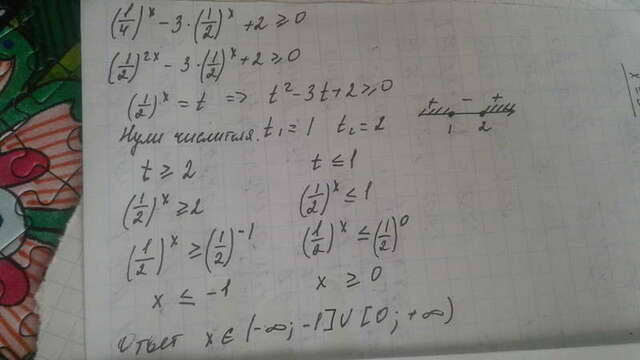 (1/4)^x - 3·(1/2)^x + 2 ≥ 0
(1/2)^2x - 3·(1/2)^x + 2 ≥ 0
(1/2)^x = t => t² - 3t + 2 ≥ 0
Нули числителя. t₁ = 1 t₂ = 2
+ - +
1 2
t ≥ 2 t ≤ 1
(1/2)^x ≥ 2 (1/2)^x ≤ 1
(1/2)^x ≥ (1/2)^-1 (1/2)^x ≤ (1/2)^0
x ≤ -1 x ≥ 0
Ответ x ∈ (-∞; -1] ∪ [0; +∞)